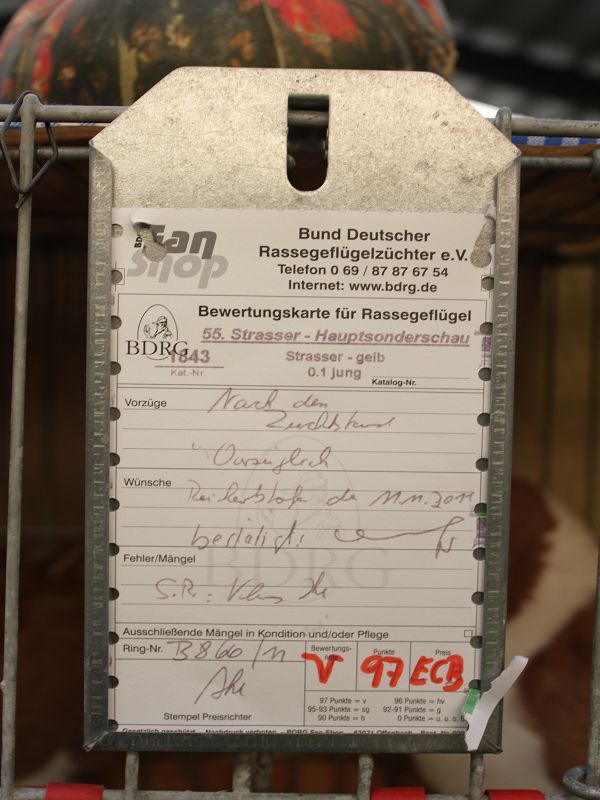 BDRG Fan
Shop
Bund Deutscher
Rassegeflügelzüchter e.V.
Telefon 0 69 / 87 87 67 54
Internet: www.bdrg.de
Bewertungskarte für Rassegeflügel
55. Strasser - Hauptsonderschau
BDRG
1843
Strasser - gelb
Kat.-Nr.
0.1 jung
Katalog-Nr.
Vorzüge
Nach dem
Zuchtstand
Vorzüglich
Wünsche
11.11.2011
bestätigt!
Fehler/Mängel
BDRG
S.R.:
Ausschließende Mängel in Kondition und/oder Pflege
Ring-Nr. B 860/11
Bewertungs-
note
Punkte
Preis
V
97
ECB
Stempel Preisrichter
97 Punkte = v
96 Punkte = hv
95-93 Punkte = sg
92-91 Punkte = g
90 Punkte = b
0 Punkte = u, u, o.